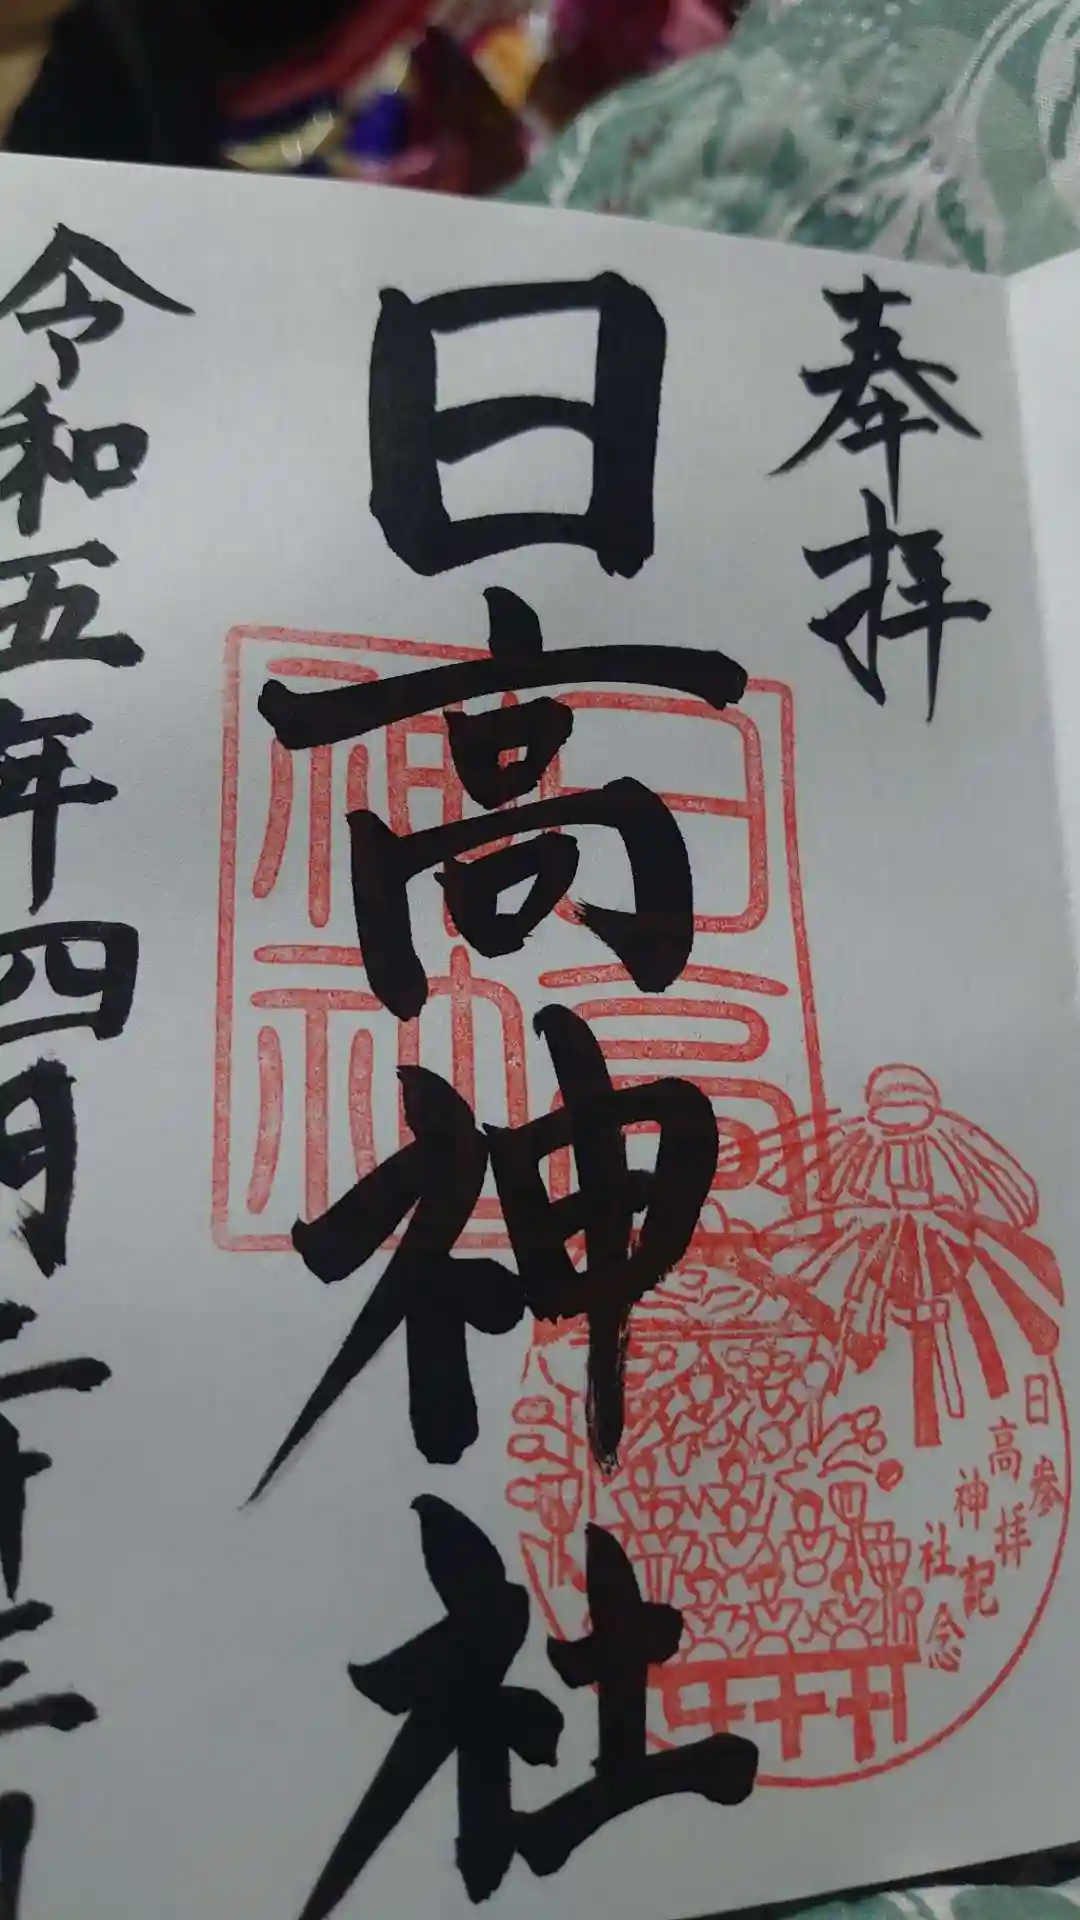 奉拝
日高神社
日高神社
日高神社
参拝記念
令和五年四月二十三日